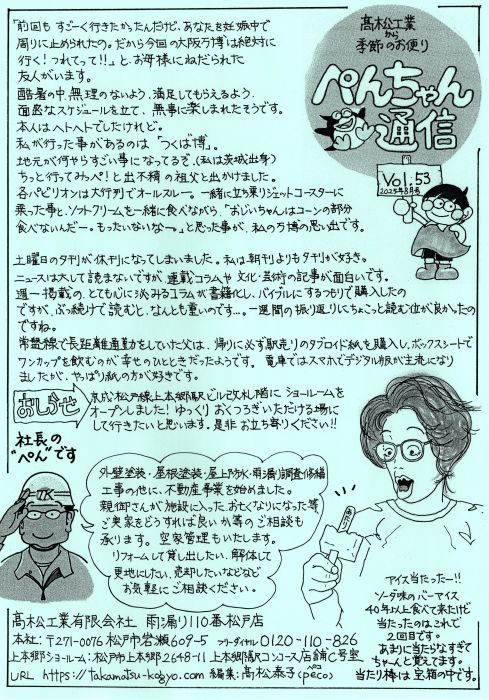 髙松工業
から
季節のお便り
ぺんちゃん
通信
Vol.53
2025年8月号
「前回も すごーく行きたかったんだけど、あなたを妊娠中で
周りに止められたの。だから今回の大阪万博は絶対に
行く！つれてって!!」と お母様にねだられた
友人がいます。
酷暑の中、無理のないよう、満足してもらえるよう、
面密なスケジュールを立て、無事に楽しまれたそうです。
本人はヘトヘトでしたけれど。
私が行った事があるのは「つくば博」。
地元が何やらすごい事になってるぞ、(私は茨城出身)
ちっと行ってみっぺ！と出不精の祖父と出かけました。
各パビリオンは大行列でオールスルー。一緒に立ち乗りジェットコースターに
乗った事と、ソフトクリームを一緒に食べながら、"おじいちゃんはコーンの部分
食べないんだー。もったいないなー。"と思った事が、私の万博の思い出です。
土曜日の夕刊が休刊になってしまいました。私は朝刊よりも夕刊が好き。
ニュースは大して読まないですが、連載コラムや文化・芸術の記事が面白いです。
週一掲載の、とても心に沁みるコラムが書籍化し、バイブルにするつもりで購入したの
ですが、ぶっ続けで読むと、なんとも重いのです…。一週間の振り返りにちょこっと読む位が良かったの
ですね。
常磐線で長距離通勤をしていた父は、帰りに必ず駅売りのタブロイド紙を購入し、ボックスシートで
ワンカップを飲むのが幸せのひとときだったようです。電車ではスマホでデジタル版が主流になり
ましたが、やっぱり紙の方が好きです。
おしらせ
京成松戸線上本郷駅ビル改札階に ショールームを
オープンしました！ゆっくり おくつろぎいただける場に
して行きたいと思います。是非お立ち寄りください!!
社長の
"ぺん"です
TK
外壁塗装・屋根塗装・屋上防水・雨漏り調査修繕
工事の他に、不動産事業を始めました。
親御さんが施設に入った、お亡くなりになった等
ご実家をどうすれば良いか等のご相談も
承ります。空家管理もいたします。
リフォームして貸し出したい、解体して
更地にしたい、売却したいなどなど
お気軽にご相談ください。
アイス当たったー!!
ソーダ味のバーアイス
40年以上食べて来たけど
当たったのはこれで
2回目です。
あまりに当たらなすぎて
ちゃーんと覚えてます。
当たり棒は宝箱の中です。
髙松工業有限会社 雨漏り110番松戸店
本社：〒271-0076 松戸市岩瀬609-5 フリーダイヤル 0120-110-826
上本郷ショールーム：松戸市上本郷2648-11 上本郷駅コンコース店舗C号室
URL https://takamatsu-kogyo.com 編集：髙松泰子(peco)